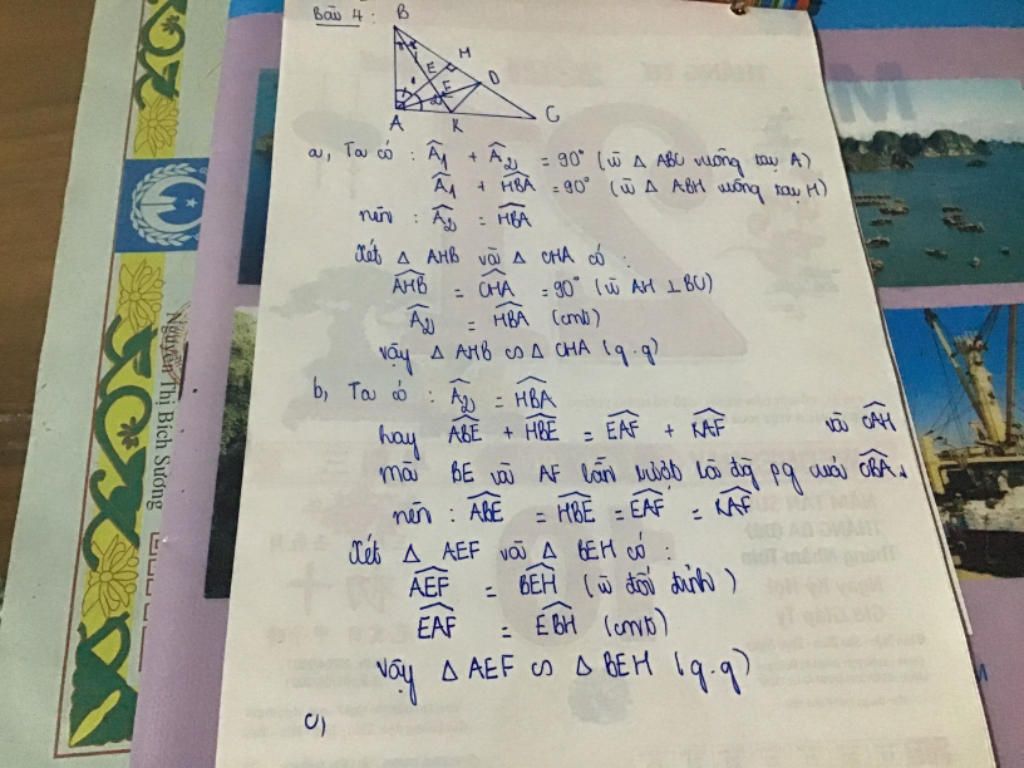 Bài 4 :
B
H
E
D
F
A
K
C
a, Ta có : Â1 + Â2 = 90° (vì Δ ABC vuông tại A)
Â1 + HBA = 90° (vì Δ ABH vuông tại H)
nên : Â2 = HBA
Xét Δ AHB và Δ CHA có :
AHB = CHA = 90° (vì AH ⊥ BC)
Â2 = HBA (cmt)
vậy Δ AHB ∽ Δ CHA (g.g)
b, Ta có : Â2 = HBA
hay ABE + HBE = EAF + KAF và CAH
mà BE và AF lần lượt là đg pg của CBA
nên : ABE = HBE = EAF = KAF
Xét Δ AEF và Δ BEH có :
AEF = BEH (vì đối đỉnh)
EAF = EBH (cmt)
vậy Δ AEF ∽ Δ BEH (g.g)
c,
Nguyễn Thị Bích Sương